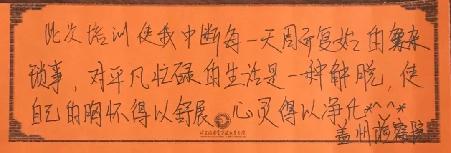 此次培训使我中断每一天周而复始的繁杂
琐事，对平凡忙碌的生活是一种解脱，使
自己的胸怀得以舒展 心灵得以净化^^^
盖州